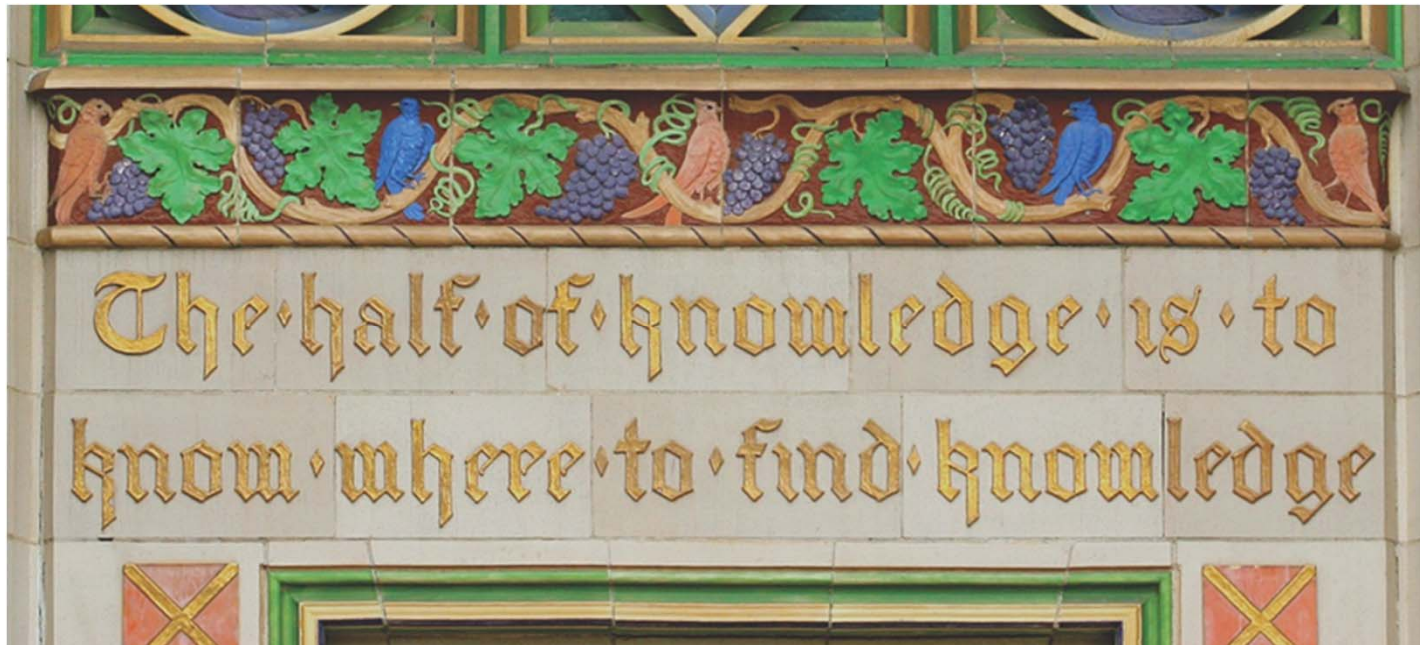 The·half·of·knowledge·is·to
know·where·to·find·knowledge